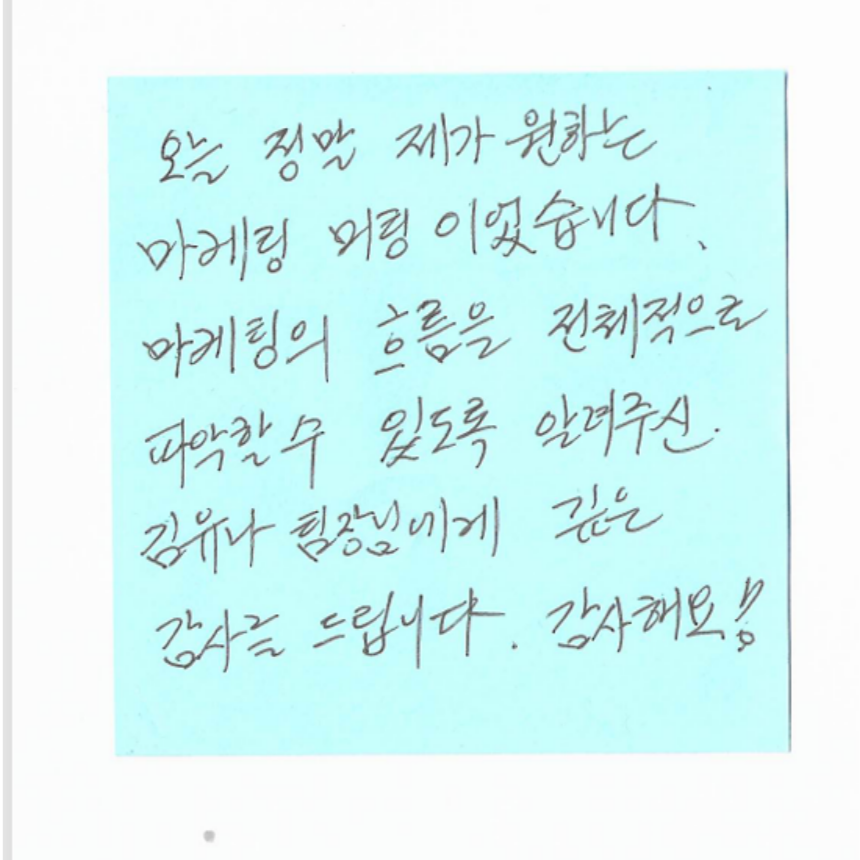 오늘 정말 제가 원하는
마케팅 미팅 이었습니다.
마케팅의 흐름을 전체적으로
파악할 수 있도록 알려주신.
김유나 팀장님에게 깊은
감사를 드립니다. 감사해요!!